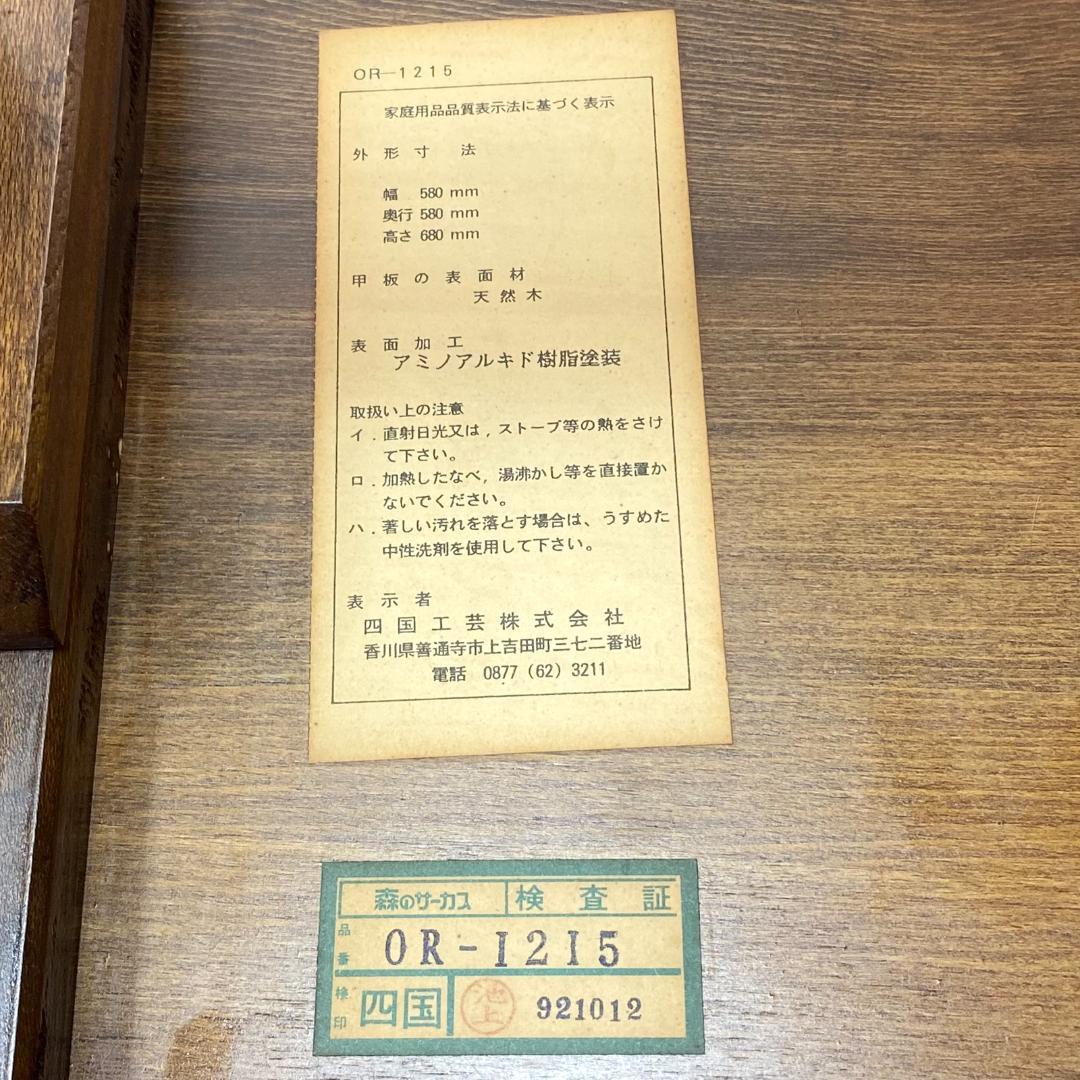 OR-1215
家庭用品品質表示法に基づく表示
外形寸法
幅 580 mm
奥行 580 mm
高さ 680 mm
甲板の表面材
天然木
表面加工
アミノアルキド樹脂塗装
取扱い上の注意
イ.直射日光又は,ストーブ等の熱をさけ
て下さい。
ロ.加熱したなべ,湯沸かし等を直接置か
ないでください。
ハ.著しい汚れを落とす場合は、うすめた
中性洗剤を使用して下さい。
表示者
四国工芸株式会社
香川県善通寺市上吉田町三七二番地
電話 0877 (62) 3211
森のサーカス 検査証
品番 OR-1215
検印 四国 池上 921012